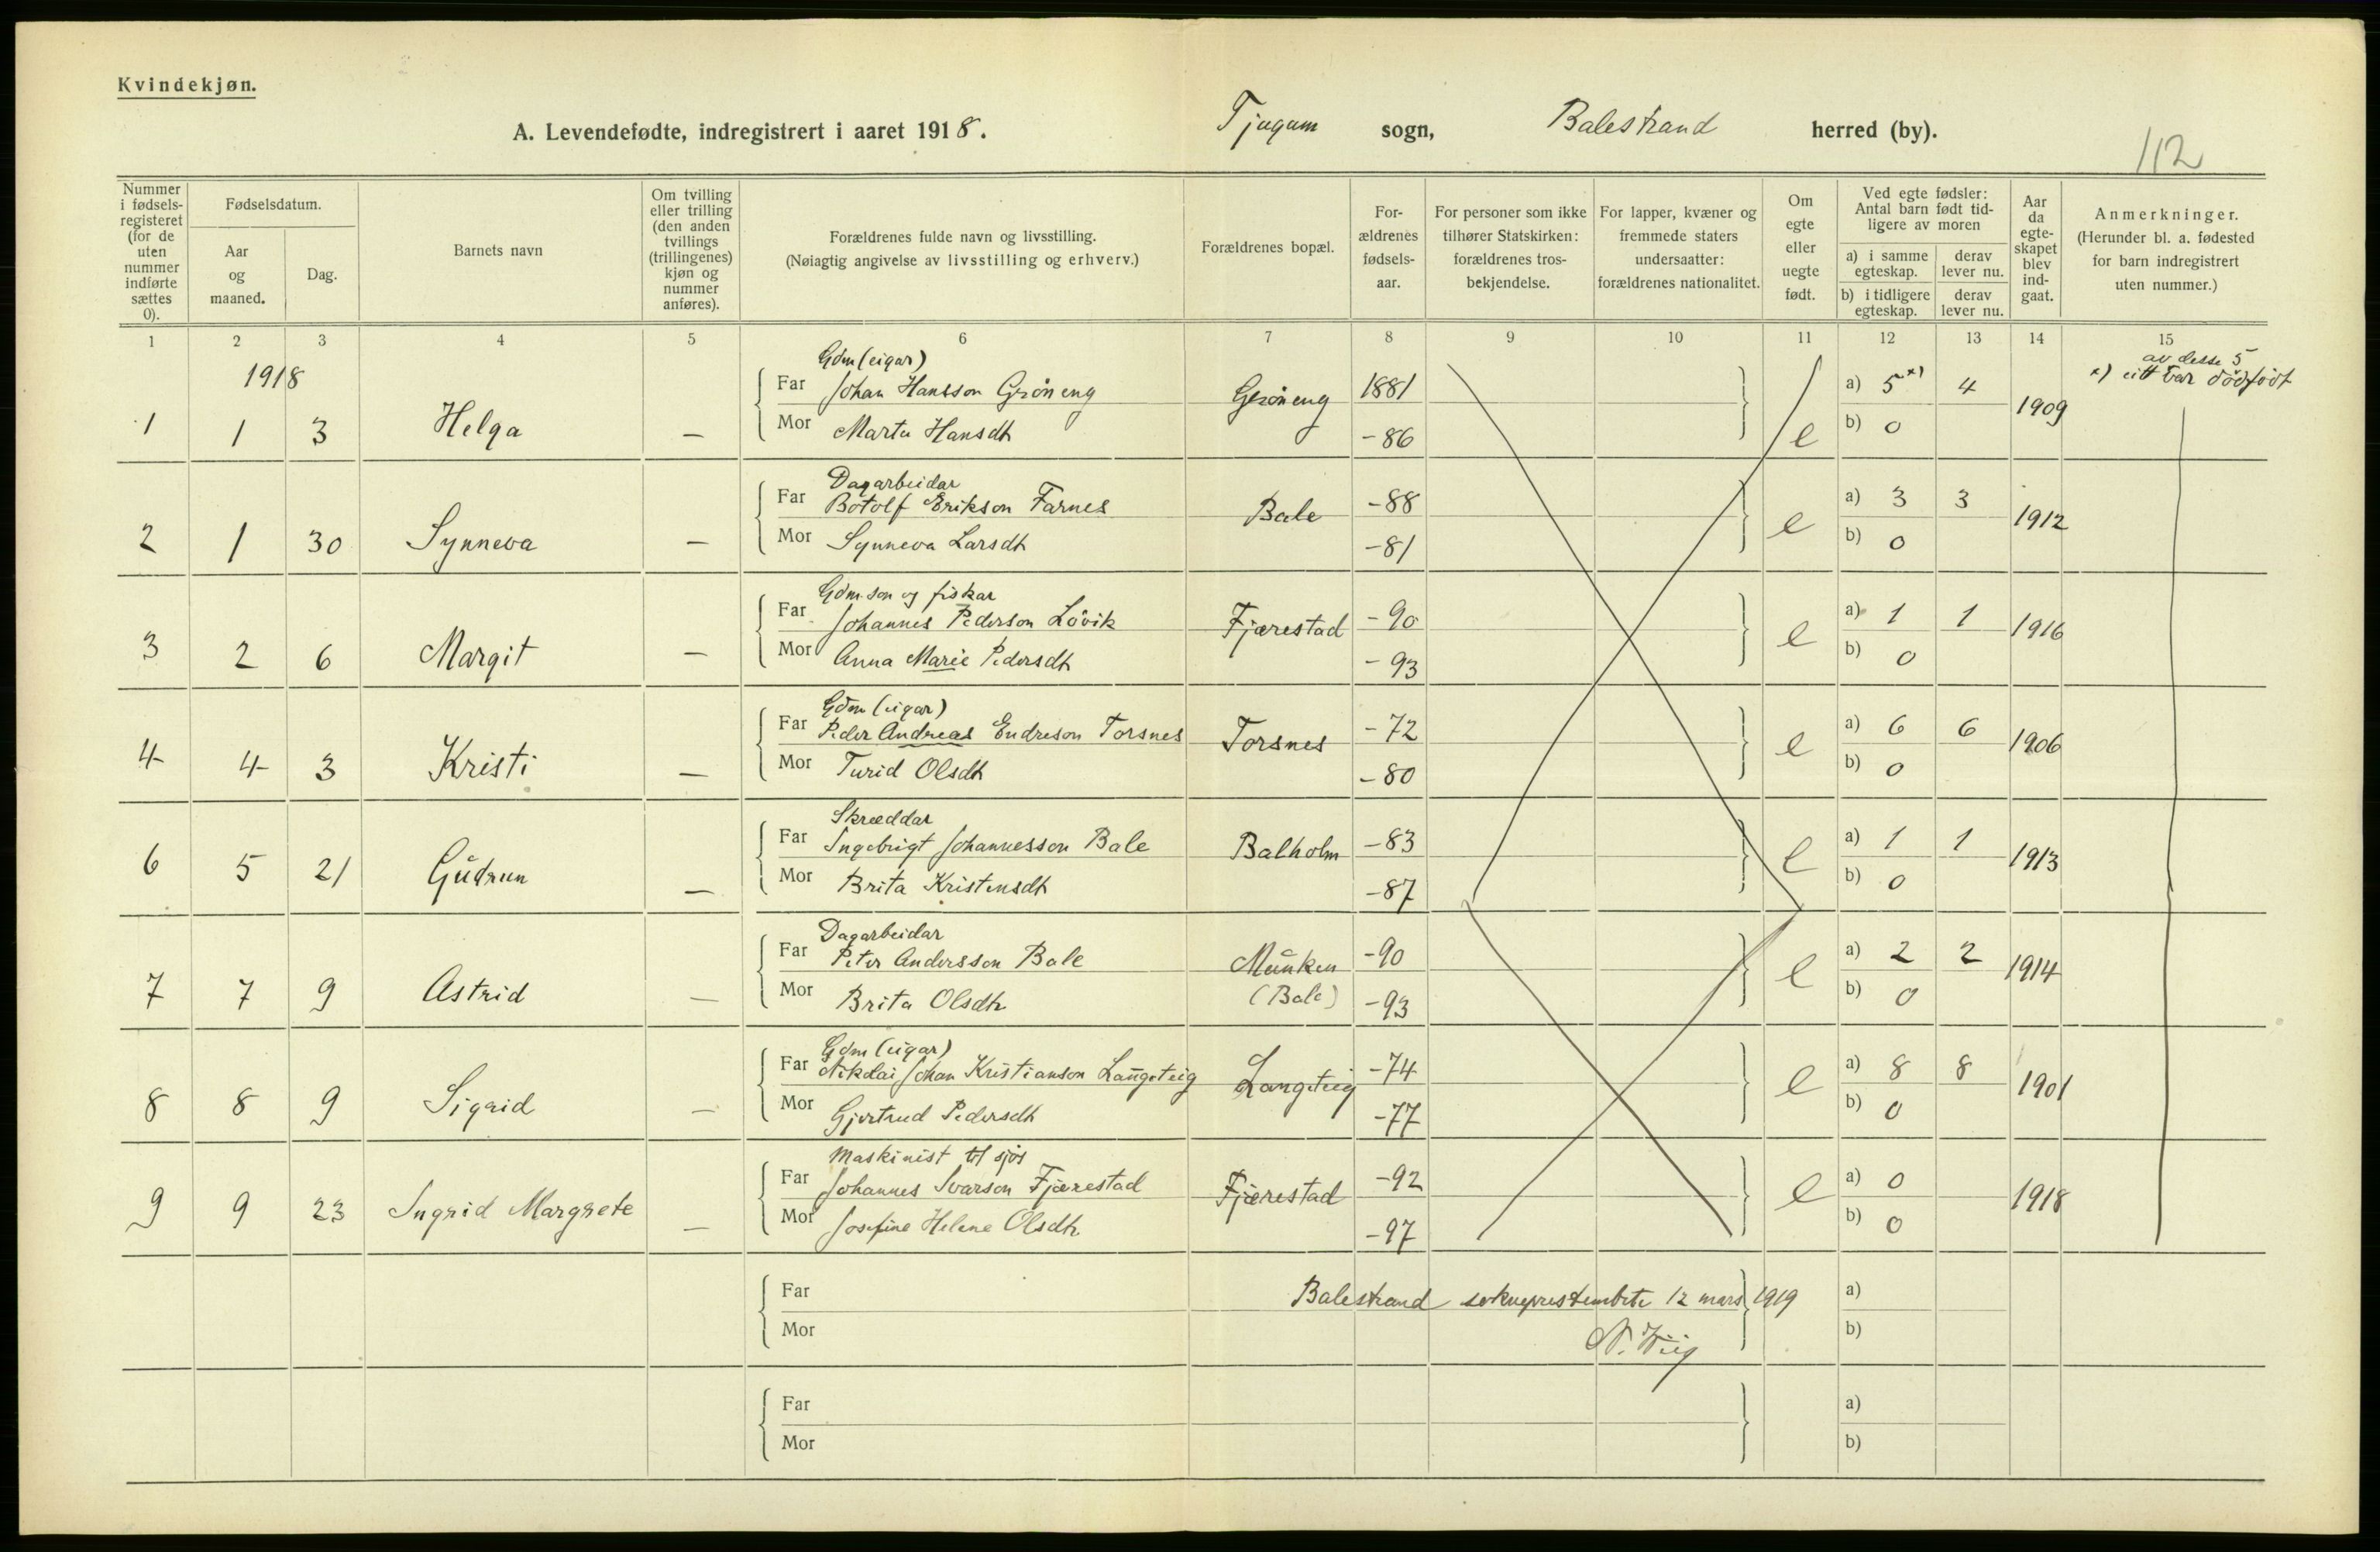 Kvindekjøn.
A. Levendefødte, indregistrert i aaret 1918. Tjugum sogn, Balestrand herred (by).
112
Nummer i fødsels-registeret (for de uten nummer indførte sættes 0).
Fødselsdatum.
Aar og maaned.
Dag.
Barnets navn
Om tvilling eller trilling (den anden tvillings (trillingenes) kjøn og nummer anføres).
Forældrenes fulde navn og livsstilling.
(Nøiagtig angivelse av livsstilling og erhverv.)
Forældrenes bopæl.
For-ældrenes fødsels-aar.
For personer som ikke tilhører Statskirken: forældrenes tros-bekjendelse.
For lapper, kvæner og fremmede staters undersaatter: forældrenes nationalitet.
Om egte eller uegte født.
Ved egte fødsler: Antal barn født tid-ligere av moren
a) i samme egteskap.
derav lever nu.
b) i tidligere egteskap.
derav lever nu.
Aar da egte-skapet blev ind-gaat.
Anmerkninger.
(Herunder bl. a. fødested for barn indregistrert uten nummer.)
1 2 3 4 5 6 7 8 9 10 11 12 13 14 15
1918
Gdm (eigar)
av desse 5
Far Johan Hansson Grøneng Grøneng 1881 a) 5 x) 4 1909 x) eitt var dødfødt
1 1 3 Helga — Mor Marta Hansdh -86 e b) 0
Dagarbeidar
Far Botolf Erikson Farnes Bale -88 a) 3 3 1912
2 1 30 Synneva — Mor Synneva Larsdh -81 e b) 0
Gdm.son og fiskar
Far Johannes Pederson Løvik Fjærestad -90 a) 1 1 1916
3 2 6 Margit — Mor Anna Marie Pedersdh -93 e b) 0
Gdm (eigar)
Far Peder Andreas Endreson Torsnes Torsnes -72 a) 6 6 1906
4 4 3 Kristi — Mor Turid Olsdh -80 e b) 0
Skræddar
Far Ingebrigt Johannesson Bale Balholm -83 a) 1 1 1913
6 5 21 Gudrun — Mor Brita Kristensdh -87 e b) 0
Dagarbeidar
Far Peter Andersson Bale Munken -90 a) 2 2 1914
7 7 9 Astrid — Mor Brita Olsdh (Bale) -93 e b) 0
Gdm (eigar)
Far Nikolai Johan Kristianson Langeteig Langeteig -74 a) 8 8 1901
8 8 9 Sigrid — Mor Gjertrud Pedersdh -77 e b) 0
Maskinist til sjøs
Far Johannes Ivarson Fjærestad Fjærestad -92 a) 0 1918
9 9 23 Ingrid Margrete — Mor Josefine Helene Olsdh -97 e b) 0
Far Balestrand sokneprestembete 12 mars 1919 a)
Mor b)
Far a)
Mor b)